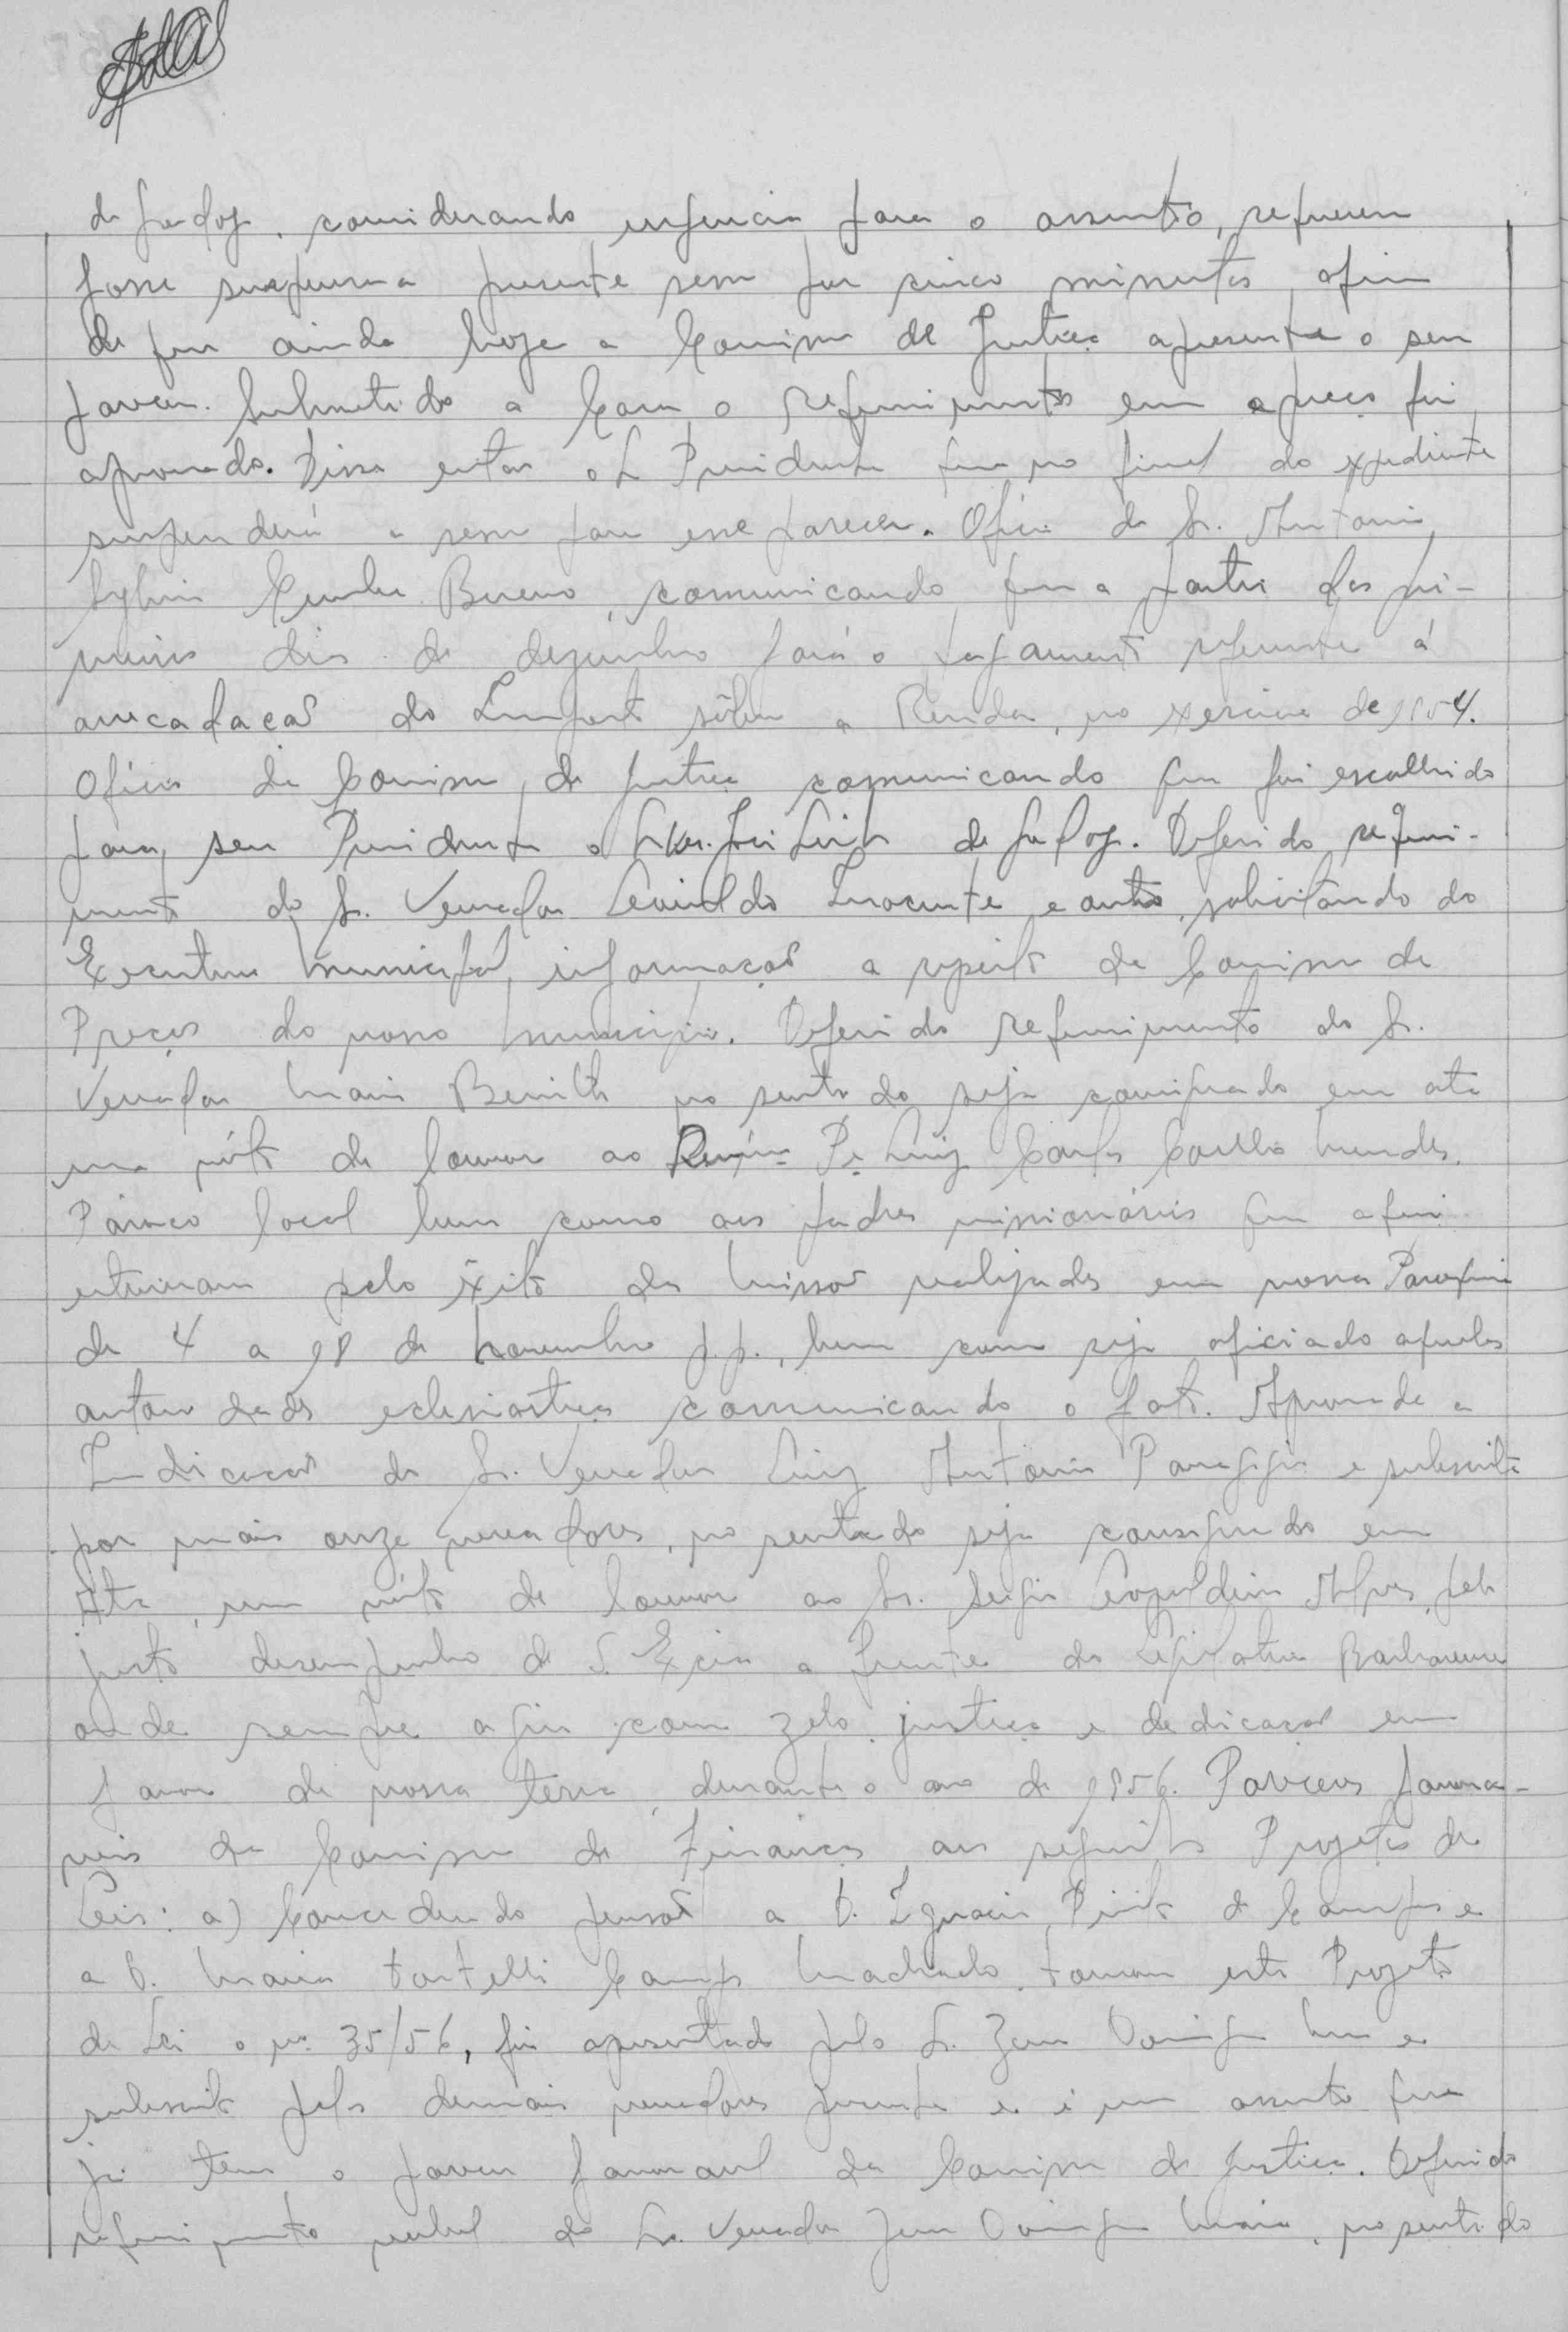 de Godoy, considerando urgencia para o assunto, requereu
fosse suspensa a presente sessão por cinco minutos, afim
de que ainda hoje a Comissão de Justiça apresente o seu
parecer. Submetido a Casa o Requerimento em apreço foi
aprovado. Disse então o Sr. Presidente que no final do expediente
suspenderá a sessão para esse parecer. Oficio do Sr. Antonio
Sylvio Cunha Bueno, comunicando que a partir dos pri-
meiros dias de dezembro fará o pagamento referente á
arrecadação do Imposto sôbre a Renda, no exercicio de 1954.
Oficio da Comissão de Justiça comunicando que foi escolhido
para seu Presidente o Sr. Ver. de Godoy. Deferido requeri-
mento do Sr. Vereador Leonildo Inocente e outro, solicitando do
Executivo Municipal, informação a respeito da Comissão de
Preços do nosso Municipio. Deferido requerimento do Sr.
Vereador Mario no sentido seja consignado em ata
um vóto de louvor ao Revmo. Pe. Luiz Carlos Coelho Mendes,
Pároco local bem como aos padres missionários que aqui
estiveram pelo êxito das Missões realizadas em nossa Paroquia
de 4 a 18 de Novembro p.p., bem como seja oficiado aquelas
autoridades eclesiasticas comunicando o fato. Aprovada a
Indicação do Sr. Vereador Luiz Antonio Panaggio e subscrita
por mais onze vereadores, no sentido seja consignado em
Ata, um vóto de louvor ao Sr. Sergio Leopoldino Alves, pelo
justo desempenho de S. Excia a frente do Legislativo Barbarense
onde sempre agiu com zelo, justiça e dedicação em
favor de nossa terra, durante o ano de 1956. Pareceres favora-
veis da Comissão de Finanças aos seguintes Projetos de
Leis: a) Concedendo pensão a D. Ignacia Pinto de Campos e
a D. Maria Tortelli Campos Machado. Tomou este Projeto
de Lei o nº 35/56, foi apresentado pelo Sr. e
subscrito pelos demais vereadores presentes e é um assunto que
já tem o parecer favoravel da Comissão de Justiça. Deferido
requerimento verbal do Sr. Vereador no sentido